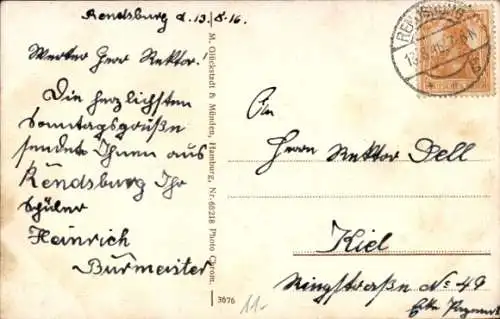 Rendsburg d. 13.8.16.
Werter Herr Rektor!
Die herzlichsten
Sonntagsgrüße
sendet Ihnen aus
Rendsburg Ihr
Schüler
Heinrich
Burmeister
M. Glückstadt & Münden, Hamburg, Nr. 68218 Photo Chrom.
3676
11.-
RENDSBURG
An
Herrn Rektor Dell
Kiel
Ringstraße No 49
Ecke